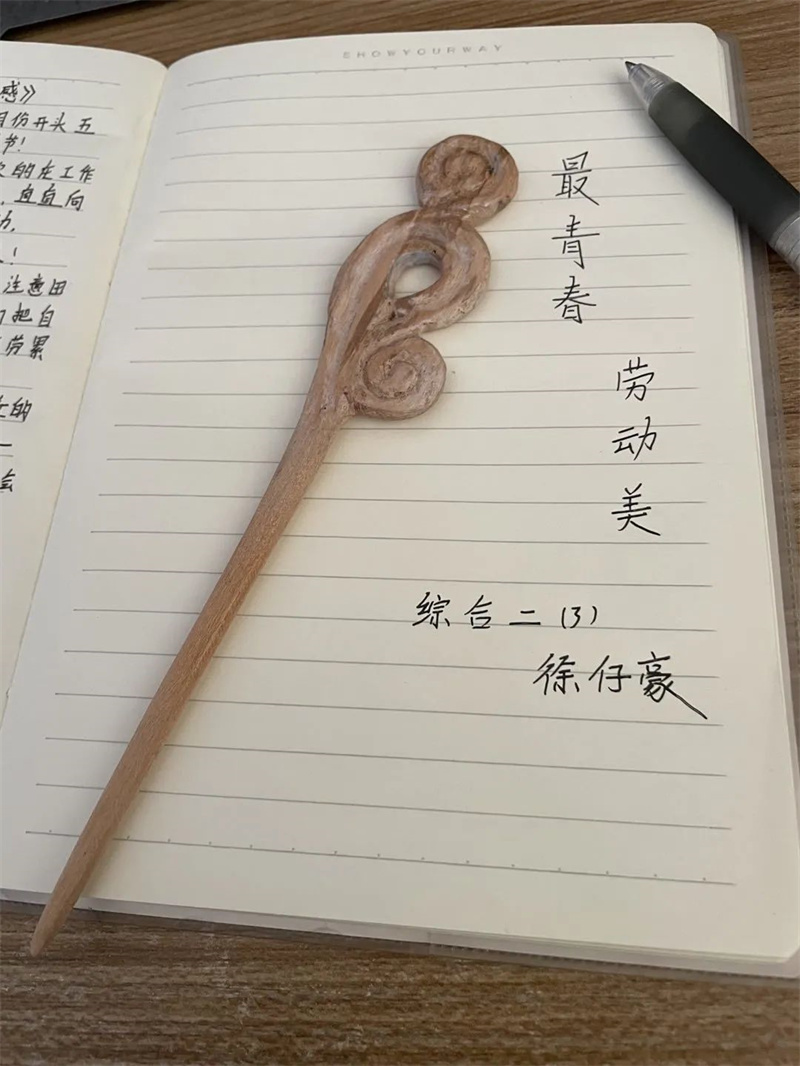 感》
月份开头五
节!
的在工作
,直直向
力,
!
注意田
把自
劳累
的
SHOWYOURWAY
最青春
劳动美
综合二(3)
徐仔豪